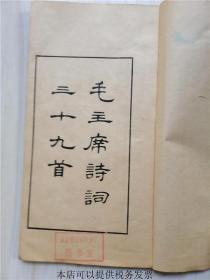 毛主席詩詞
三十九首
本店可以提供税务发票